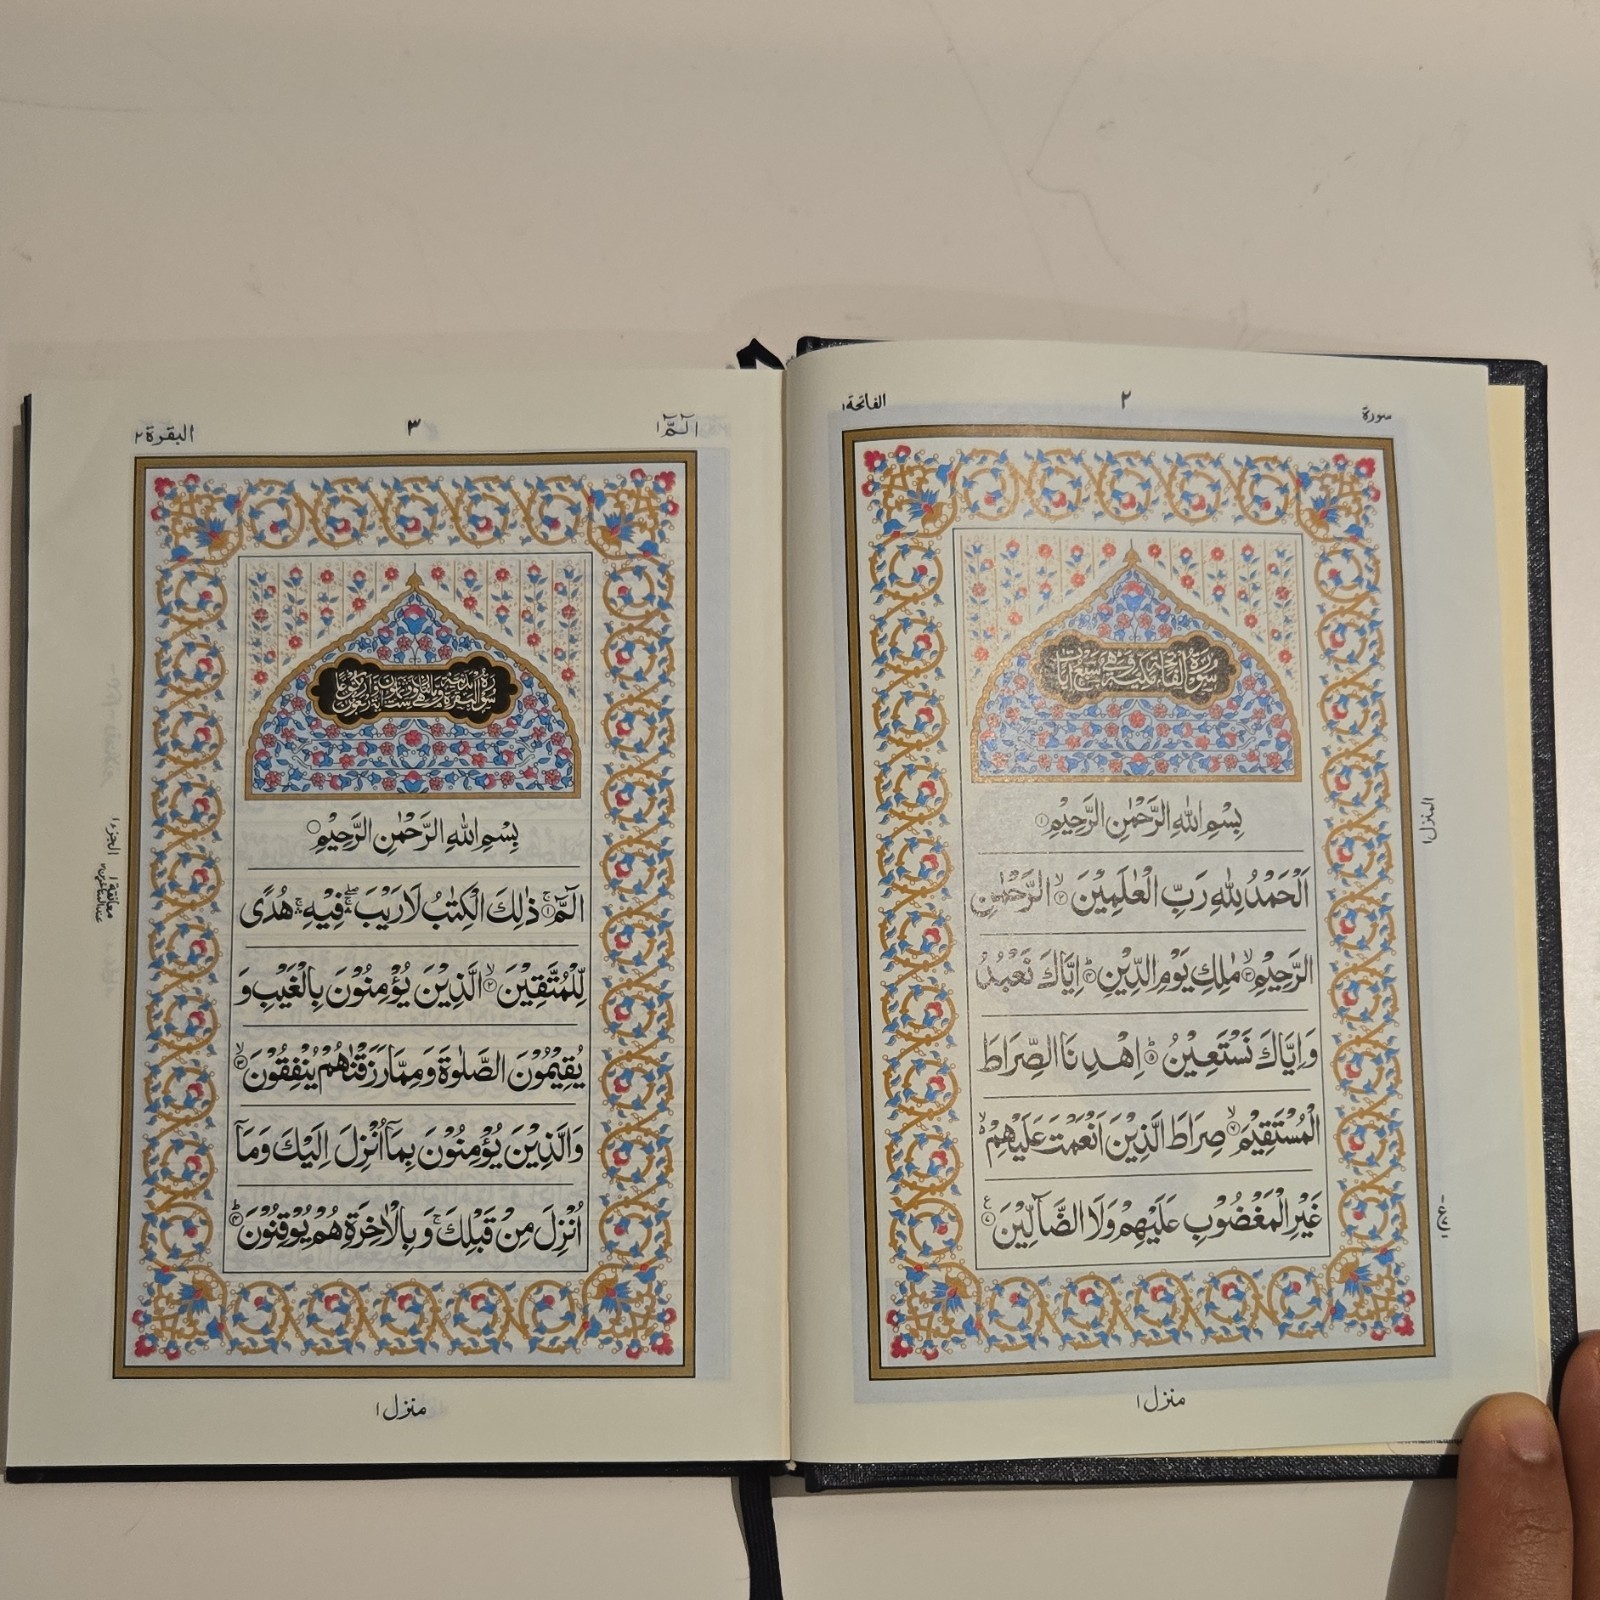 سورة ٢ الفاتحة ١
سُوْرَةُ الْفَاتِحَةِ مَكِّيَّةٌ وَّهِيَ سَبْعُ اٰيَاتٍ
بِسْمِ اللّٰهِ الرَّحْمٰنِ الرَّحِيْمِ ١
اَلْحَمْدُ لِلّٰهِ رَبِّ الْعٰلَمِيْنَ ٢ الرَّحْمٰنِ
الرَّحِيْمِ ٣ مٰلِكِ يَوْمِ الدِّيْنِ ٤ اِيَّاكَ نَعْبُدُ
وَاِيَّاكَ نَسْتَعِيْنُ ٥ اِهْدِنَا الصِّرَاطَ
الْمُسْتَقِيْمَ ٦ صِرَاطَ الَّذِيْنَ اَنْعَمْتَ عَلَيْهِمْ
غَيْرِ الْمَغْضُوْبِ عَلَيْهِمْ وَلَا الضَّآلِّيْنَ ٧
المنزل ١
منزل ١
الٓمّٓ ١ ٣ البقرة ٢
بِسْمِ اللّٰهِ الرَّحْمٰنِ الرَّحِيْمِ
الٓمّٓ ١ ذٰلِكَ الْكِتٰبُ لَا رَيْبَ فِيْهِ هُدًى
لِّلْمُتَّقِيْنَ ٢ الَّذِيْنَ يُؤْمِنُوْنَ بِالْغَيْبِ وَ
يُقِيْمُوْنَ الصَّلٰوةَ وَمِمَّا رَزَقْنٰهُمْ يُنْفِقُوْنَ ٣
وَالَّذِيْنَ يُؤْمِنُوْنَ بِمَآ اُنْزِلَ اِلَيْكَ وَمَآ
اُنْزِلَ مِنْ قَبْلِكَ وَبِالْاٰخِرَةِ هُمْ يُوْقِنُوْنَ ٤
الجزء ١
معانقة ١
منزل ١